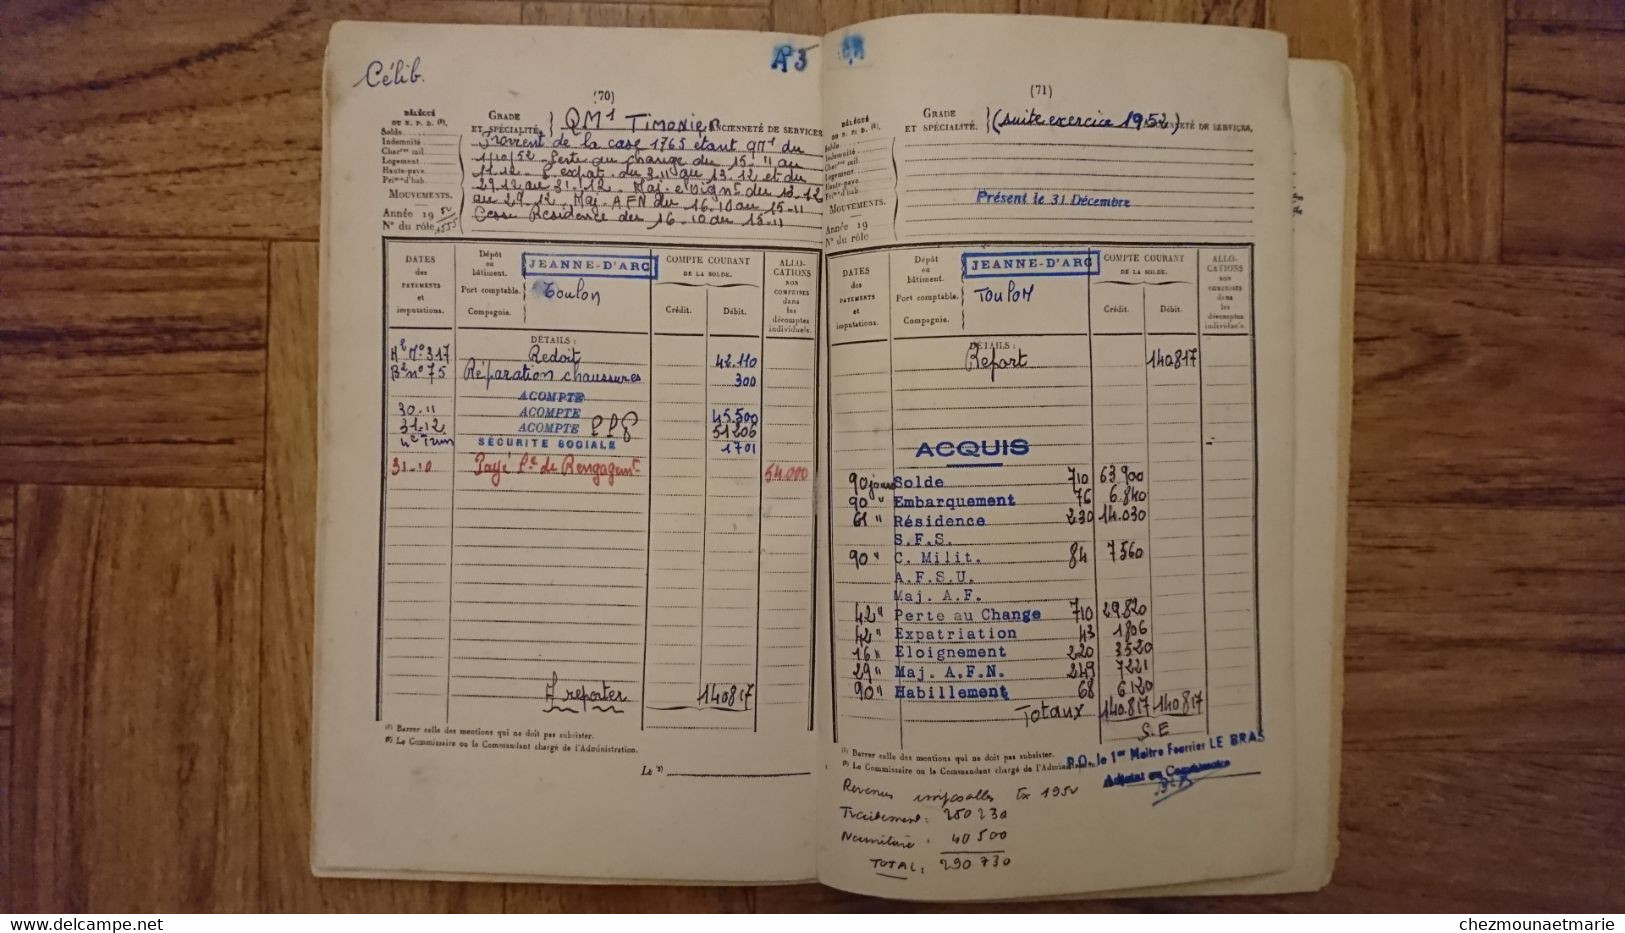 Célib.
A3
(70)
DÉLÉGUÉ
OU N. P. D. (1).
Solde
Indemnité
Charges mil
Logement
Haute-paye
Prime d'hab.
MOUVEMENTS.
Année 19 52
N° du rôle 1555
GRADE
ET SPÉCIALITÉ. QM1 Timonier ANCIENNETÉ DE SERVICES
Provient de la case 1765 étant QM1 du
1/10/52 Perte au change du 15.11 au
11.12. expat. du 3.11 au 13.12 et du
29.12 au 31.12. Maj. eloignt du 13.12
au 29.12. Maj. AFN du 16.10 au 15.11
Cesse Residence du 16.10 au 15.11
DATES
des
PAYEMENTS
et
imputations.
Dépôt
ou
bâtiment.
JEANNE-D'ARC
Port comptable.
Toulon
Compagnie.
COMPTE COURANT
DE LA SOLDE.
Crédit.
Débit.
ALLO-
CATIONS
NON
COMPRISES
dans
les
décomptes
individuels.
DÉTAILS :
N° 317 Redoit 42.110
B2 n° 75 Réparation chaussures 300
ACOMPTE
30.11 ACOMPTE 45.500
31.12 ACOMPTE 51206
4e Trim SÉCURITÉ SOCIALE 1701
31.10 Payé Pe de Rengagemt 54.000
A reporter 140817
(1) Barrer celle des mentions qui ne doit pas subsister.
(2) Le Commissaire ou le Commandant chargé de l'Administration.
Le 2)
(71)
DÉLÉGUÉ
OU N. P. D. (1).
Solde
Indemnité
Charges mil.
Logement
Haute-paye
Prime d'hab.
MOUVEMENTS.
Année 19
N° du rôle
GRADE
ET SPÉCIALITÉ. (suite exercice 1952) ANCIENNETÉ DE SERVICES.
Présent le 31 Décembre
DATES
des
PAYEMENTS
et
imputations.
Dépôt
ou
bâtiment.
JEANNE-D'ARC
Port comptable.
TOULON
Compagnie.
COMPTE COURANT
DE LA SOLDE.
Crédit.
Débit.
ALLO-
CATIONS
NON
COMPRISES
dans
les
décomptes
individuels.
DÉTAILS :
Report 140817
ACQUIS
90 jours Solde 710 63900
90 " Embarquement 76 6.840
61 " Résidence 230 14.030
S.F.S.
90 " C. Milit. 84 7560
A.F.S.U.
Maj. A.F.
42 " Perte au Change 710 29820
42 " Expatriation 43 1806
16 " Eloignement 220 3520
29 " Maj. A.F.N. 249 7221
90 " Habillement 68 6120
Totaux 140.817 140817
S.E
(1) Barrer celle des mentions qui ne doit pas subsister.
(2) Le Commissaire ou le Commandant chargé de l'Administration.
P.O. le 1er Maître Fourrier LE BRAS
Revenus imposables Ex 1952
Traitement : 250 230
Nourriture : 40 500
TOTAL : 290 730
www.delcampe.net
chezmounaetmarie